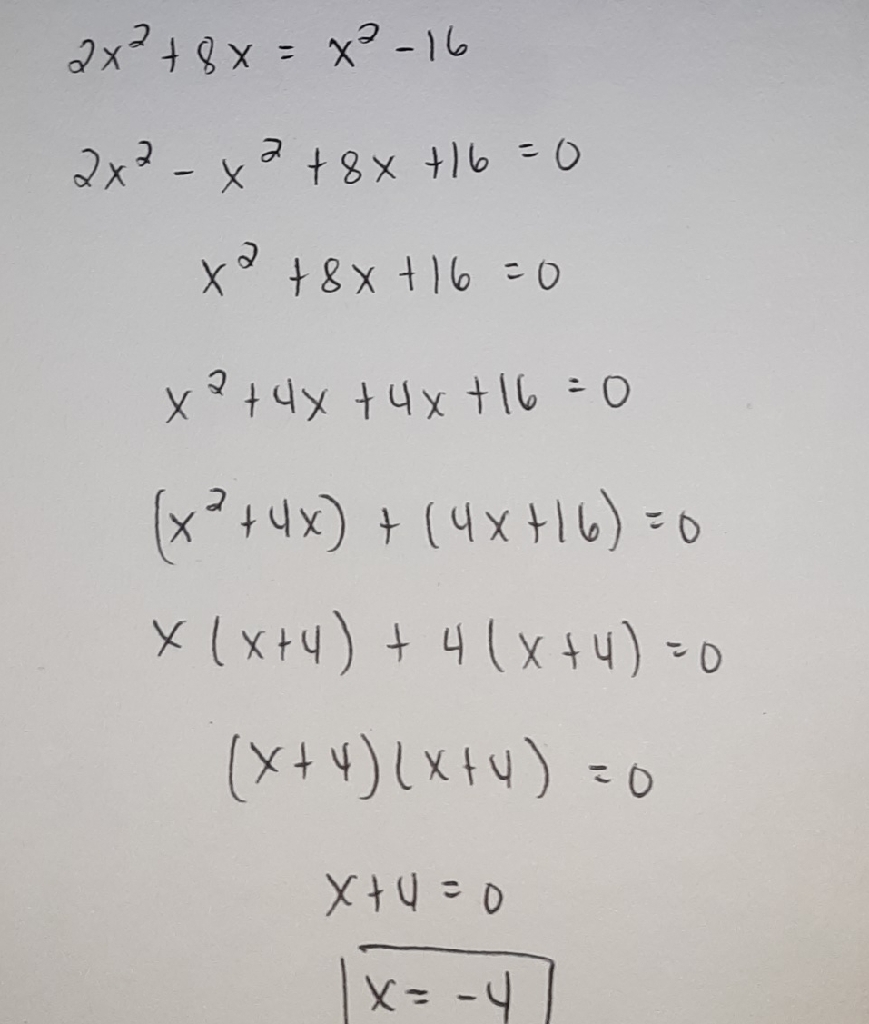 2x² + 8x = x² - 16
2x² - x² + 8x + 16 = 0
x² + 8x + 16 = 0
x² + 4x + 4x + 16 = 0
(x² + 4x) + (4x + 16) = 0
x(x+4) + 4(x+4) = 0
(x+4)(x+4) = 0
x+4 = 0
x = -4